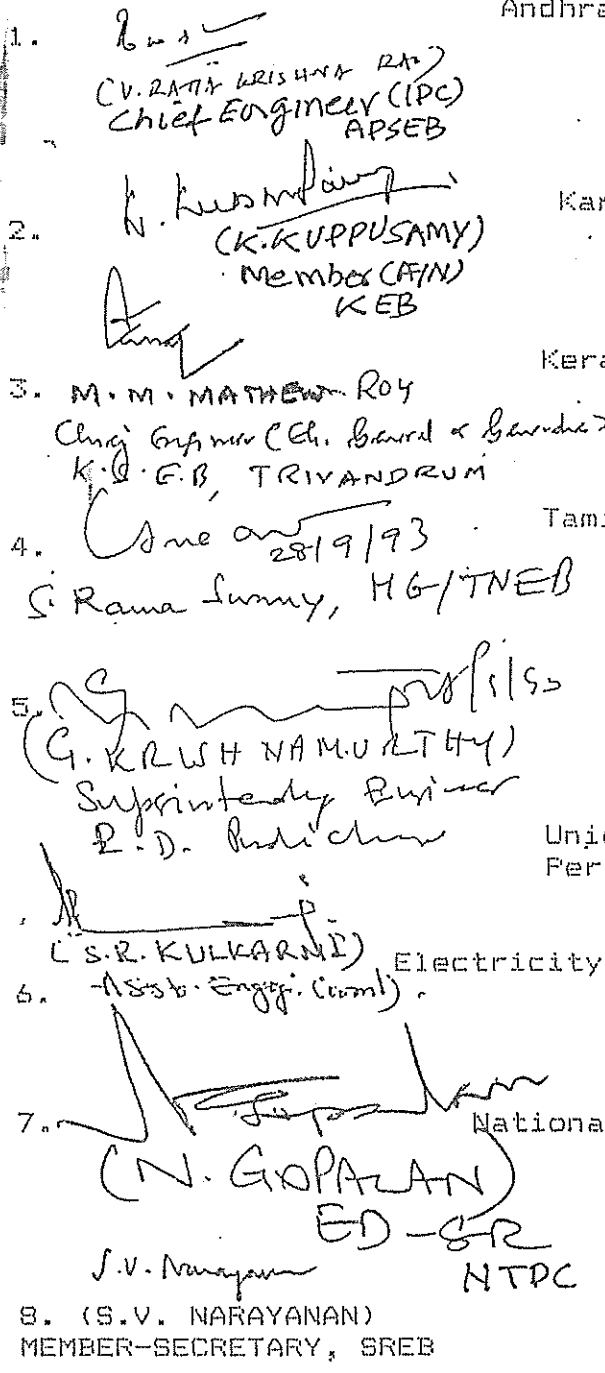 Andhra
1.
(V. RAMA KRISHNA RAO)
Chief Engineer (IPC)
APSEB
Kar
2.
(K. KUPPUSAMY)
Member (A/N)
KEB
Kera
3. M. M. MATHEW ROY
Chief Engineer (
K.S.E.B, TRIVANDRUM
Tami
4.
28/9/93
S. Rama Swamy, /TNEB
5.
(G. KRISHNAMURTHY)
Superintending Engineer
Unio
Per
(S.R. KULKARNI)
Electricity
6. Asst. Engg.
7.
Nationa
(N. GOPALAN)
ED-SR
NTPC
S.V. Narayanan
8. (S.V. NARAYANAN)
MEMBER-SECRETARY, SREB